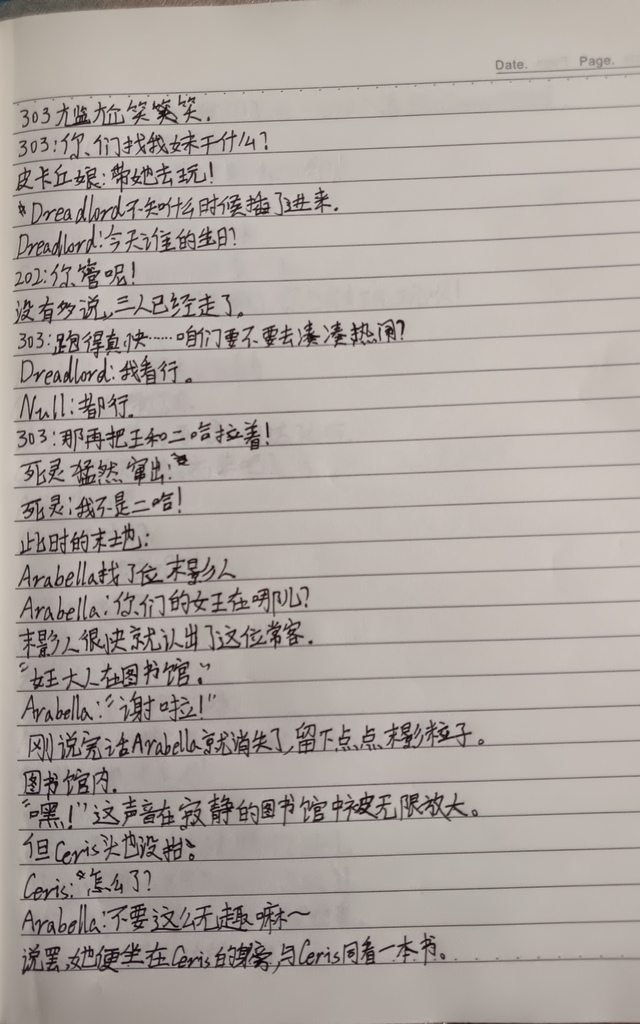 Date. Page.
303尢监尢介笑笑笑.
303:你们找我妹干什么?
皮卡丘娘:带她去玩!
*Dreadlord不知什么时候插了进来.
Dreadlord:今天谁的生日?
202:你管呢!
没有多说,三人已经走了。
303:跑得真快……咱们要不要去凑凑热闹?
Dreadlord:我看行。
Null:都行.
303:那再把王和二哈拉着!
死灵猛然窜出:
死灵:我不是二哈!
此时的末地:
Arabella找了位末影人
Arabella:你们的女王在哪儿?
末影人很快就认出了这位常客.
"女王大人在图书馆."
Arabella:"谢啦!"
刚说完话Arabella就消失了,留下点点末影粒子。
图书馆内.
"嘿!"这声音在寂静的图书馆中被无限放大。
但Ceris头也没抬。
Ceris:"怎么了?
Arabella:不要这么无趣嘛~
说罢,她便坐在Ceris的身旁,与Ceris同看一本书。